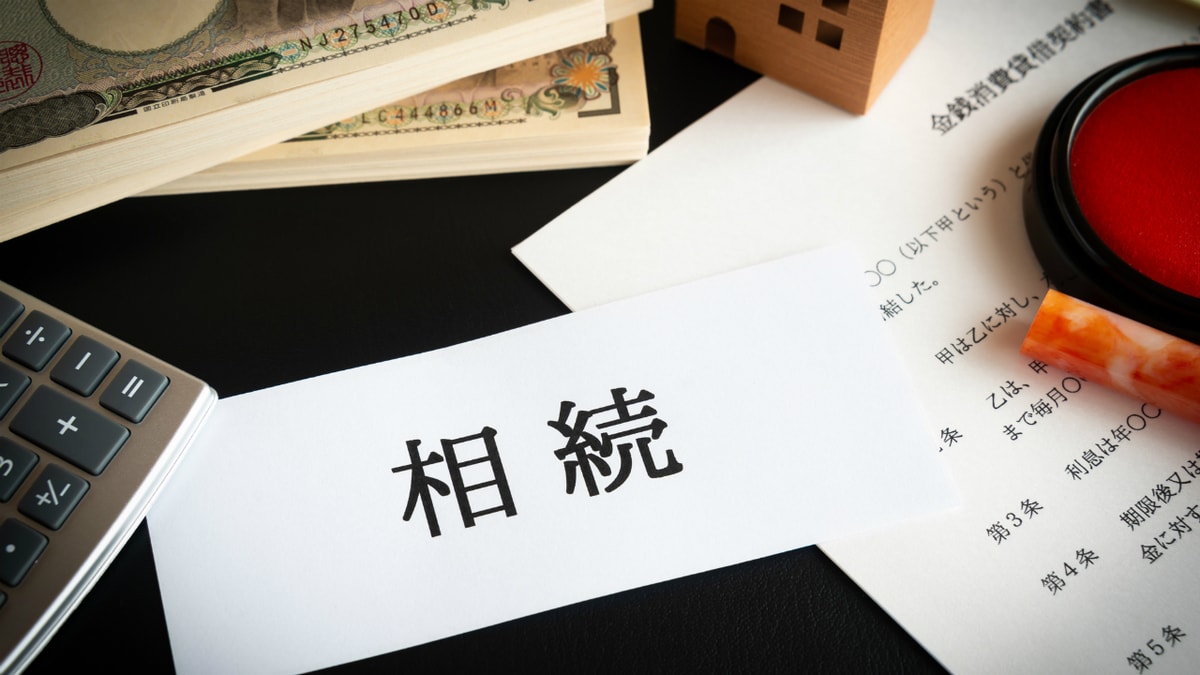 NJ275470D
国立印刷局製造
LC444866M
相続
金銭消費貸借契約書
〇〇（以下甲という）と
結した。
甲は乙に対し、
乙は、甲
まで毎月〇
条
利息は年〇〇
第3条
期限後又は
第4条
金に対す
第5条
÷
−
=
+
3
+/−
•